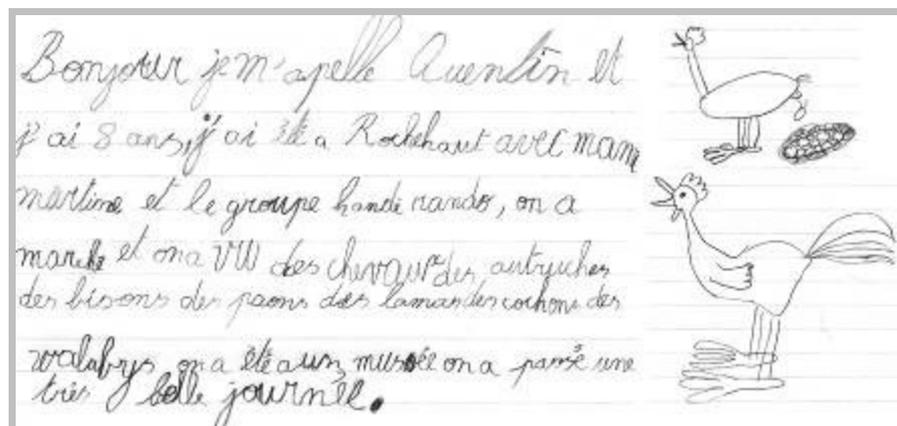 Bonjour je m'apelle Quentin et
j'ai 8 ans, j'ai été a Rochehaut avec mam
martine et le groupe handi rando, on a
marche et on a vu des chevaux des autruches
des bisons des paons des lamas des cochons des
walabys on a été a un musée on a passé une
très belle journée.